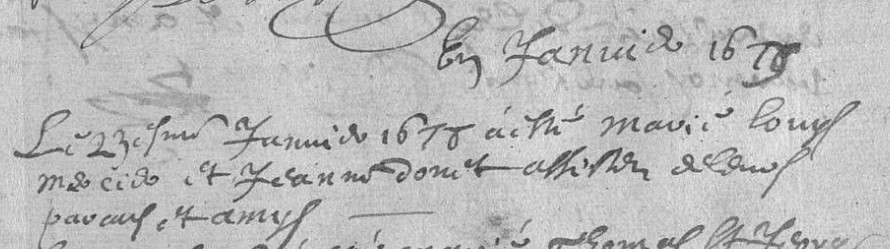 En Janvier 1678
Le 23esme Janvier 1678 a esté marié Louys
mercier et Jeanne donet assistez de leurs
parans et amys